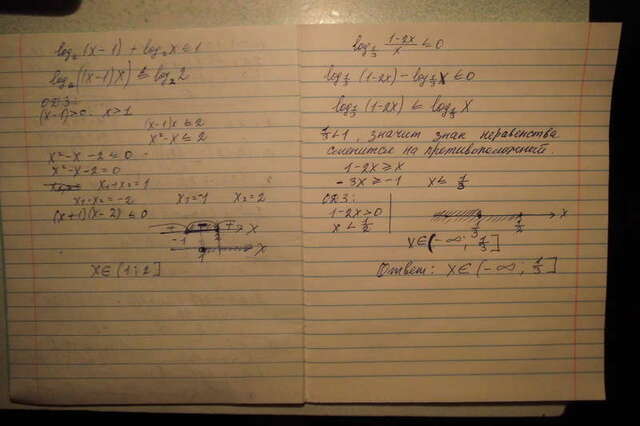 log₂(x-1) + log₂x ≤ 1
log₂((x-1)x) ≤ log₂2
ОДЗ:
(x-1)>0 x>1
(x-1)x ≤ 2
x²-x ≤ 2
x²-x-2 ≤ 0
x²-x-2=0
x₁+x₂=1
x₁·x₂=-2 x₁=-1 x₂=2
(x+1)(x-2) ≤ 0
+ - + x
-1 2
1 x
x∈(1;2]
log_{1/3} (1-2x)/x ≤ 0
log_{1/3}(1-2x) - log_{1/3}x ≤ 0
log_{1/3}(1-2x) ≤ log_{1/3}x
1/3<1, значит знак неравенства
сменится на противоположный.
1-2x ≥ x
-3x ≥ -1 x ≤ 1/3
ОДЗ:
1-2x>0
x < 1/2
1/3 1/2 x
x∈(-∞; 1/3]
Ответ: x∈(-∞; 1/3]